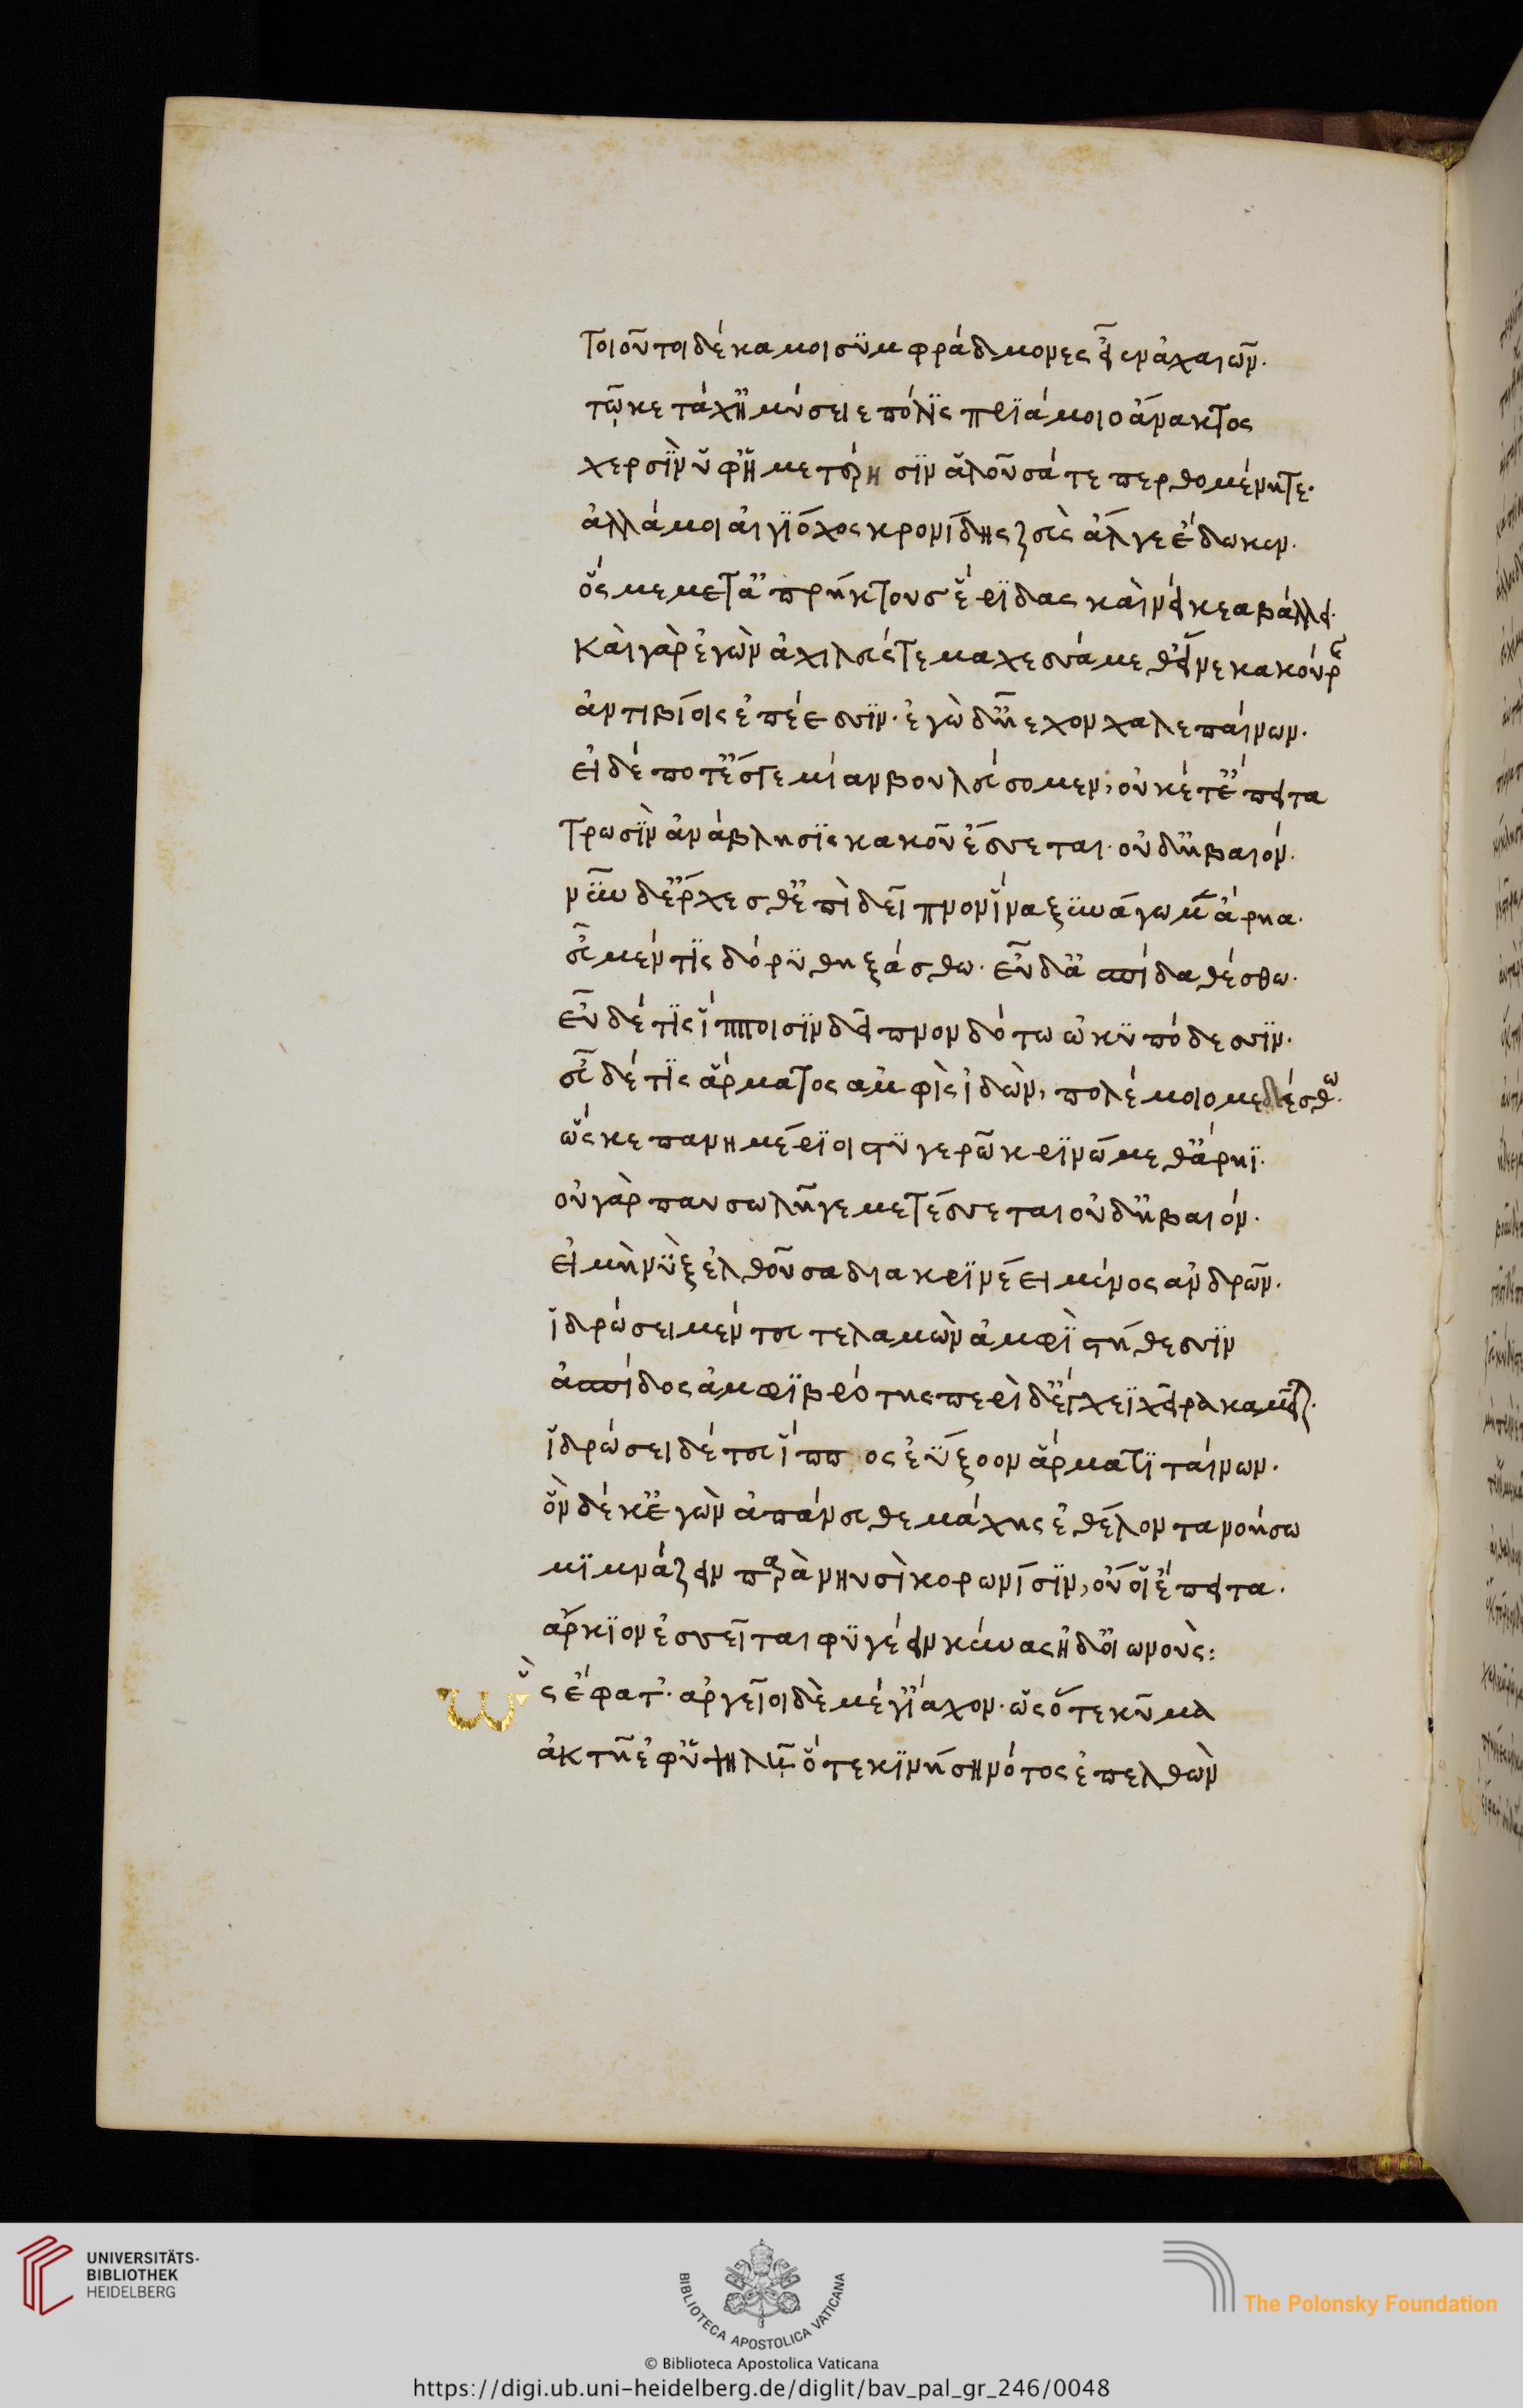 τοιοῦτοι δέκα μοι συμφράδμονες εἶεν ἀχαιῶν.
τῷ κε τάχ' ἠμύσειε πόλις πριάμοιο ἄνακτος
χερσὶν ὑφ' ἡμετέρησιν ἁλοῦσά τε περθομένητε.
ἀλλά μοι αἰγίοχος κρονίδης ζεὺς ἄλγε' ἔδωκεν.
ὅς με μετ' ἀπρήκτους ἔριδας καὶ νείκεα βάλλει.
καὶ γὰρ ἐγὼν ἀχιλεύς τε μαχεσσάμεθ' εἵνεκα κούρης
ἀντιβίοις ἐπέεσσιν. ἐγὼ δ' ἦρχον χαλεπαίνων.
εἰ δέ ποτ' ἔς γε μίαν βουλεύσομεν, οὐκέτ' ἔπειτα
τρωσὶν ἀνάβλησις κακοῦ ἔσσεται. οὐδ' ἠβαιόν.
νῦν δ' ἔρχεσθ' ἐπὶ δεῖπνον ἵνα ξυνάγωμεν ἄρηα.
εὖ μέν τις δόρυ θηξάσθω. εὖ δ' ἀσπίδα θέσθω.
εὖ δέ τις ἵπποισιν δεῖπνον δότω ὠκυπόδεσσιν.
εὖ δέ τις ἅρματος ἀμφὶς ἰδὼν, πολέμοιο μεδέσθω.
ὥς κε πανημέριοι στυγερῷ κρινώμεθ' ἄρηϊ.
οὐ γὰρ παυσωλή γε μετέσσεται οὐδ' ἠβαιόν.
εἰ μὴ νὺξ ἐλθοῦσα διακρινέει μένος ἀνδρῶν.
ἱδρώσει μέν τευ τελαμὼν ἀμφὶ στήθεσσιν
ἀσπίδος ἀμφιβρότης περὶ δ' ἔγχεϊ χεῖρα καμεῖται.
ἱδρώσει δέ τευ ἵππος ἐΰξοον ἅρμα τιταίνων.
ὃν δέ κ' ἐγὼν ἀπάνευθε μάχης ἐθέλοντα νοήσω
μιμνάζειν παρὰ νηυσὶ κορωνίσιν, οὔ οἱ ἔπειτα.
ἄρκιον ἐσσεῖται φυγέειν κύνας ἠδ' οἰωνούς:
ὣς ἔφατ'. ἀργεῖοι δὲ μέγ' ἴαχον. ὡς ὅτε κῦμα
ἀκτῇ ἐφ' ὑψηλῇ ὅτε κινήσῃ νότος ἐπελθὼν
UNIVERSITÄTS-
BIBLIOTHEK
HEIDELBERG
BIBLIOTECA APOSTOLICA VATICANA
The Polonsky Foundation
© Biblioteca Apostolica Vaticana
https://digi.ub.uni-heidelberg.de/diglit/bav_pal_gr_246/0048